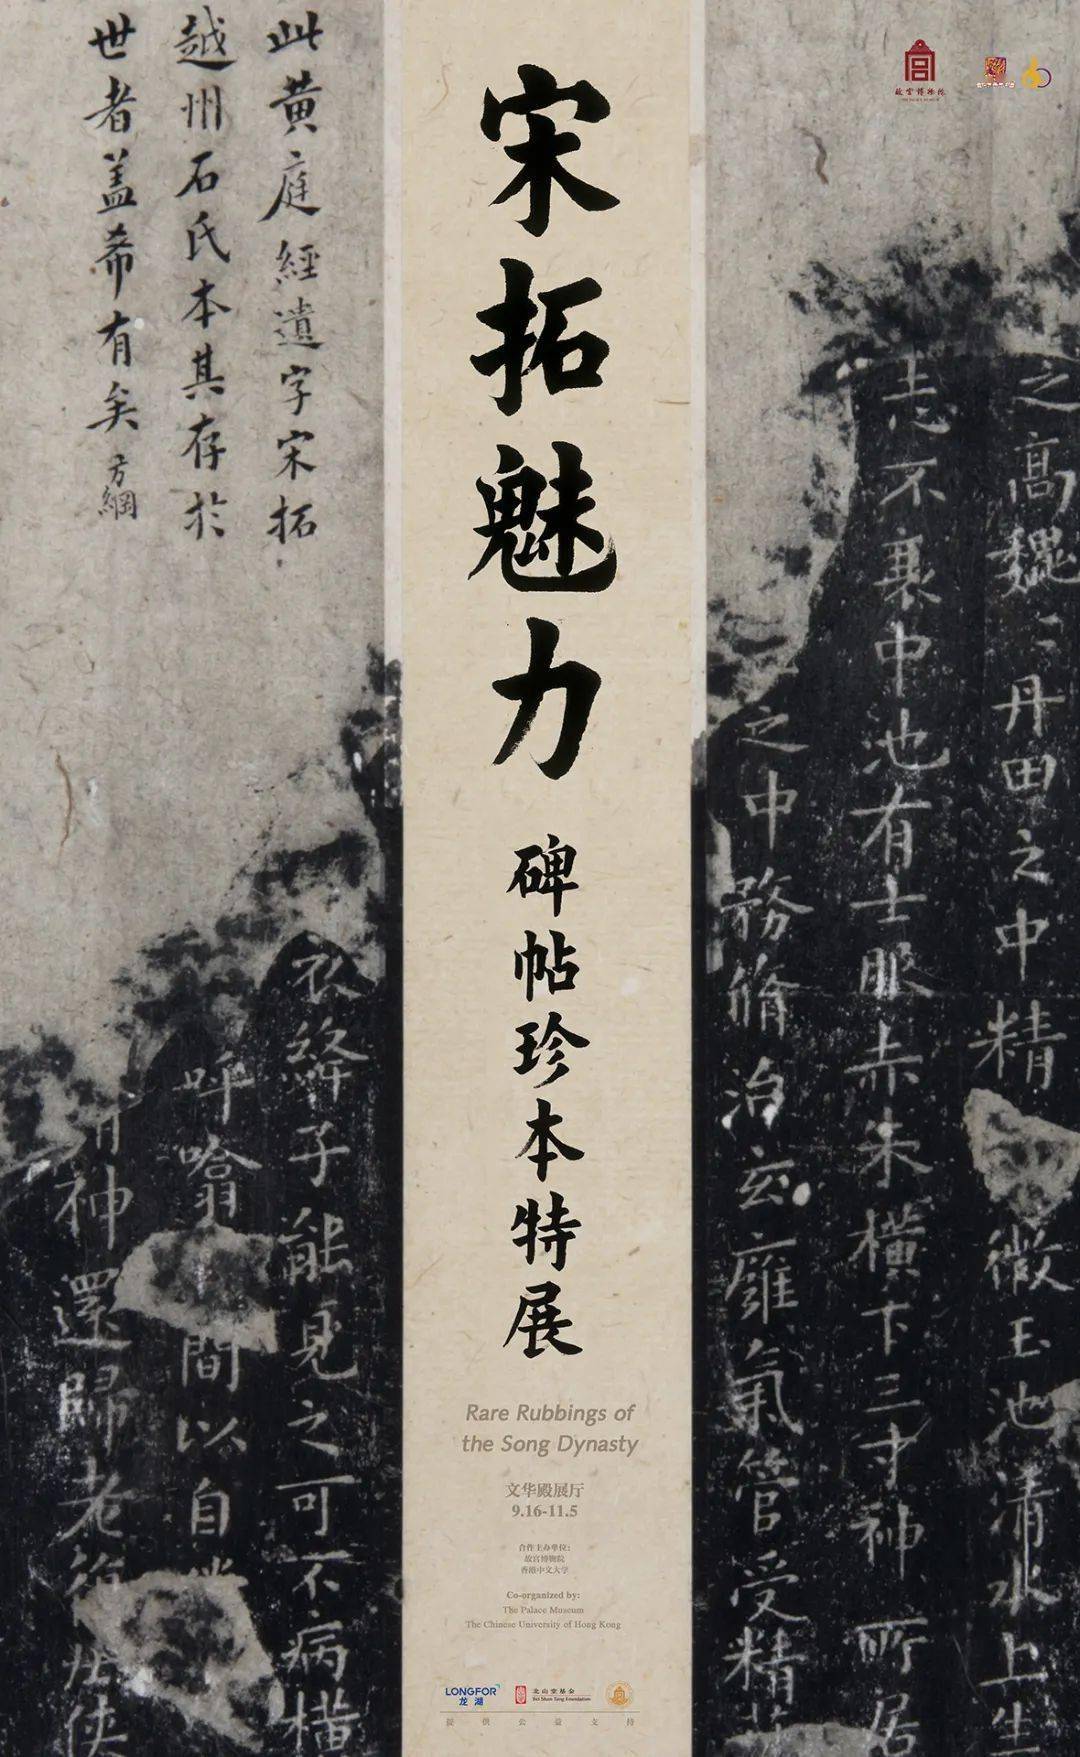 宋拓魅力
碑帖珍本特展
Rare Rubbings of
the Song Dynasty
文华殿展厅
9.16-11.5
合作主办单位：
故宫博物院
香港中文大学
Co-organized by:
The Palace Museum
The Chinese University of Hong Kong
LONGFOR
龙湖
北山堂基金
Bei Shan Tang Foundation
提供公益支持
故宫博物院
此黄庭經遺字宋拓
越州石氏本其存於
世者盖希有矣
方綱
之高巍〻丹田之中精
微玉池清水上生
志不衰中池有士服赤朱横下三寸神所居
之中務脩治玄廱氣管受精
衣絳子能見之可不病横
呼噏間以自
神還歸老
俠